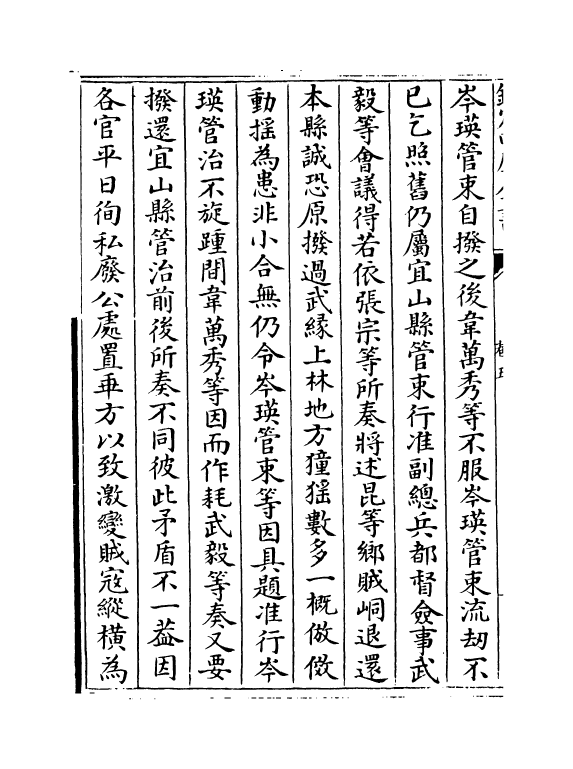 岑瑛管束自撥之後韋萬秀等不服岑瑛管束流刼不
已乞照舊仍屬宜山縣管束行准副總兵都督僉事武
毅等會議得若依張宗等所奏將述昆等鄉賊峒退還
本縣誠恐原撥過武緣上林地方獞猺數多一概倣傚
動摇為患非小合無仍令岑瑛管束等因具題准行岑
瑛管治不旋踵間韋萬秀等因而作耗武毅等奏又要
撥還宜山縣管治前後所奏不同彼此矛盾不一葢因
各官平日徇私廢公處置乖方以致激變賊寇縱横為